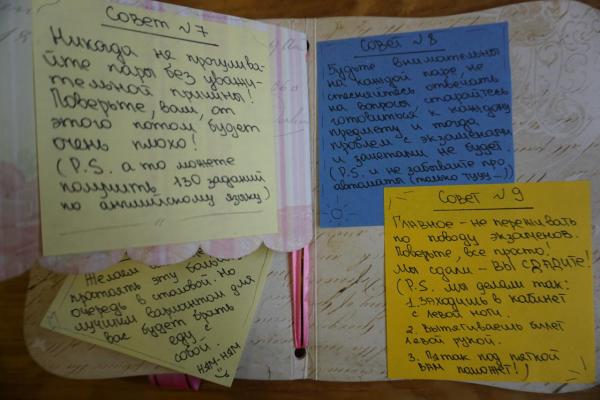 Совет №7
Никогда не прогулива-
йте пары без уважи-
тельной причины!
Поверьте, вам, от
этого потом будет
очень плохо!
(P.S. а то можете
получить 130 заданий
по английскому языку)
Желаем
простоять эту большую
очередь в столовой. Но
лучшим вариантом для
вас будет брать
еду с
собой...
НЯМ-НЯМ
Совет №8
Будьте внимательны
на каждой паре, не
стесняйтесь отвечать
на вопросы, старайтесь
готовиться к каждому
предмету и тогда
проблем с экзаменами
и зачетами не будет
(P.S. и не забывайте про
автоматы (только тууу-))
Совет №9
Главное - не переживать
по поводу экзаменов.
Поверьте, все просто!
Мы сдали - ВЫ СДАДИТЕ!
(P.S. мы делали так:
1. Заходишь в кабинет
с левой ноги.
2. Вытягиваешь билет
левой рукой.
3. Пятак под пяткой
ВАМ поможет!)